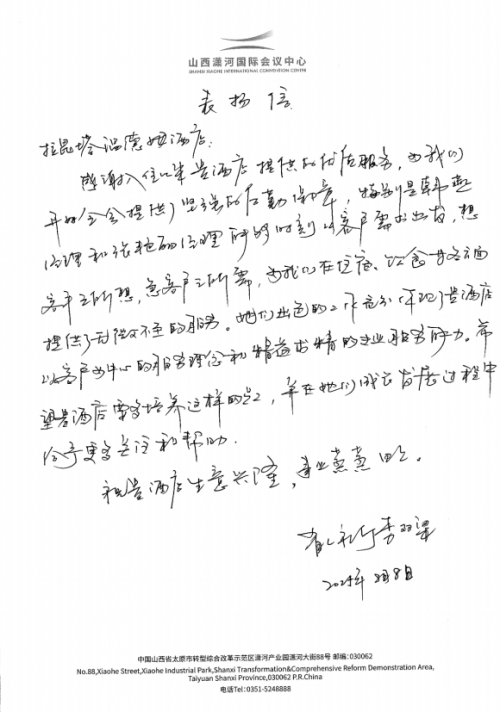 山西潇河国际会议中心
SHANXI XIAOHE INTERNATIONAL CONVENTION CENTER
表扬信
拉昆塔温德姆酒店:
感谢入住以来贵酒店提供的优质服务,为我们
开好全会提供了坚强的后勤保障,特别是韩燕
经理和张艳丽经理能够时刻以客户需求出发,想
客户之所想,急客户之所需,为我们在住宿、饮食等各方面
提供了无微不至的服务。她们出色的工作充分体现了贵酒店
以客户为中心的服务理念和精益求精的专业服务能力。希
望贵酒店要多培养这样的员工,并在她们成长发展过程中
给予更多关注和帮助。
祝贵酒店生意兴隆,事业蒸蒸日上。
李
2025年 月8日
中国山西省太原市转型综合改革示范区潇河产业园潇河大街88号 邮编:030062
No.88,Xiaohe Street,Xiaohe Industrial Park,Shanxi Transformation&Comprehensive Reform Demonstration Area,
Taiyuan Shanxi Province,030062 P.R.China
电话Tel:0351-5248888